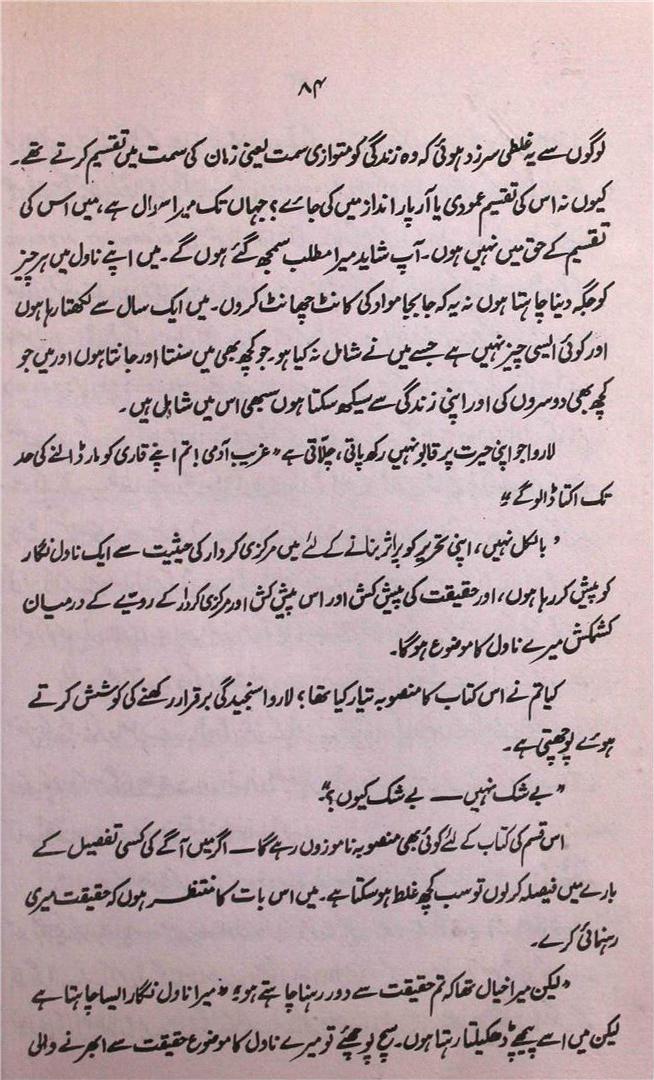 ۸۴
لوگوں سے یہ غلطی سرزد ہوئی کہ وہ زندگی کو متوازی سمت یعنی زمان کی سمت میں تقسیم کرتے تھے۔
کیوں نہ اس کی تقسیم عمودی یا آر پار انداز میں کی جائے؟ جہاں تک میرا سوال ہے، میں اس کی
تقسیم کے حق میں نہیں ہوں۔ آپ شاید میرا مطلب سمجھ گئے ہوں گے۔ میں اپنے ناول میں ہر چیز
کو جگہ دینا چاہتا ہوں نہ یہ کہ جا بجا مواد کی کانٹ چھانٹ کروں۔ میں ایک سال سے لکھتا رہا ہوں
اور کوئی ایسی چیز نہیں ہے جسے میں نے شامل نہ کیا ہو۔ جو کچھ بھی میں سنتا اور جانتا ہوں اور میں جو
کچھ بھی دوسروں کی اور اپنی زندگی سے سیکھ سکتا ہوں سبھی اس میں شامل ہیں۔
لاروا جو اپنی حیرت پر قابو نہیں رکھ پاتی، چلّاتی ہے "غریب آدمی! تم اپنے قاری کو مار ڈالنے کی حد
تک اکتا ڈالو گے"
'بالکل نہیں، اپنی تحریر کو پر اثر بنانے کے لئے میں مرکزی کردار کی حیثیت سے ایک ناول نگار
کو پیش کر رہا ہوں، اور حقیقت کی پیش کش اور اس پیش کش اور مرکزی کردار کے رویّے کے درمیان
کشمکش میرے ناول کا موضوع ہوگا۔
کیا تم نے اس کتاب کا منصوبہ تیار کیا تھا؟ لاروا سنجیدگی برقرار رکھنے کی کوشش کرتے
ہوئے پوچھتی ہے۔
"بے شک نہیں — بے شک کیوں؟"
اس قسم کی کتاب کے لئے کوئی بھی منصوبہ ناموزوں رہے گا — اگر میں آگے کی کسی تفصیل کے
بارے میں فیصلہ کر لوں تو سب کچھ غلط ہو سکتا ہے۔ میں اس بات کا منتظر ہوں کہ حقیقت میری
رہنمائی کرے۔
"لیکن میرا خیال تھا کہ تم حقیقت سے دور رہنا چاہتے ہو" "میرا ناول نگار ایسا چاہتا ہے
لیکن میں اسے پیچھے ڈھکیلتا رہتا ہوں۔ سچ پوچھئے تو میرے ناول کا موضوع حقیقت سے ابھرنے والی